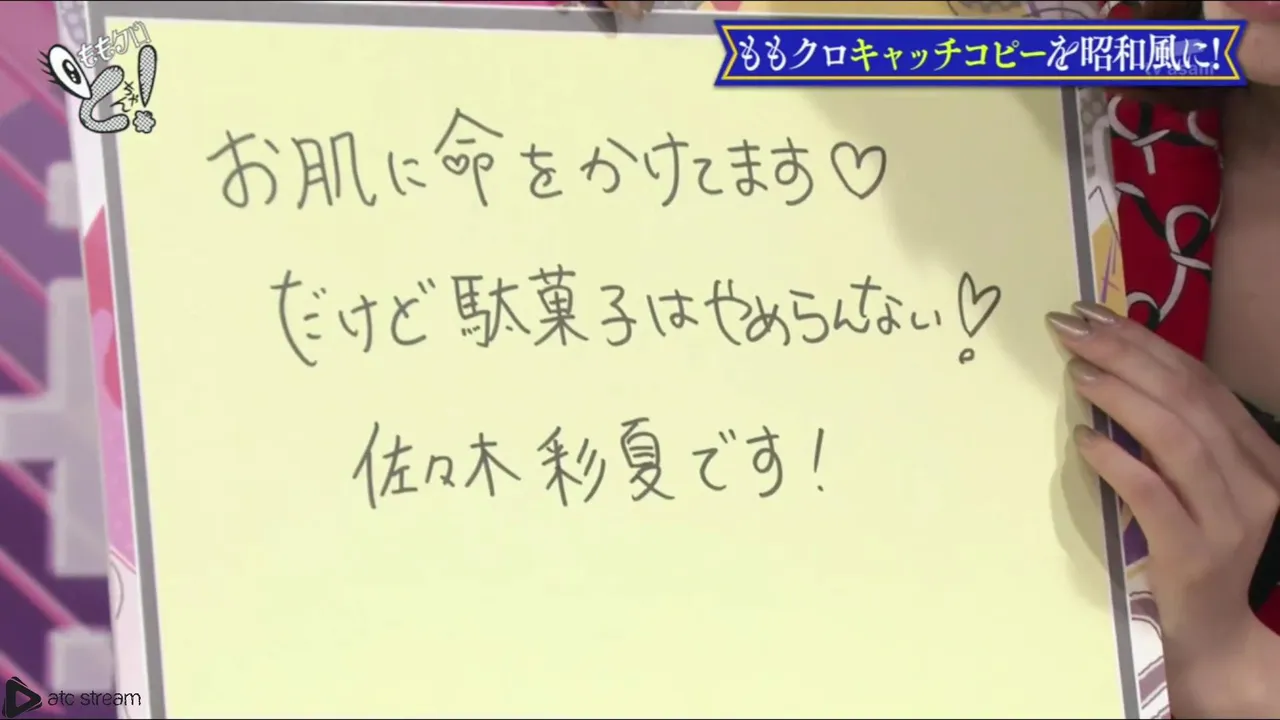 ももクロ
と!
ももクロキャッチコピーを昭和風に!
tv asahi
お肌に命をかけてます♡
だけど駄菓子はやめらんない♡
佐々木彩夏です!
atc stream